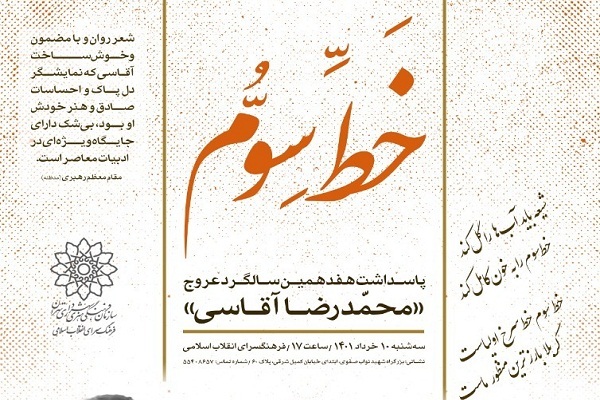 شعر روان و با مضمون
و خوش‌ساخت
آقاسی که نمایشگر
دل پاک و احساسات
صادق و هنر خودش
او بود، بی‌شک دارای
جایگاه ویژه‌ای در
ادبیات معاصر است.
مقام معظم رهبری (مدظله)
خَطِّ سِوُّم
پاسداشت هفدهمین سالگرد عروج
«محمّدرضا آقاسی»
سه‌شنبه ۱۰ خرداد ۱۴۰۱ / ساعت ۱۷ / فرهنگسرای انقلاب اسلامی
نشانی: بزرگراه شهید نواب صفوی، ابتدای خیابان کمیل شرقی، پلاک ۶۰ / شماره تماس: ۵۵۴۰۸۶۵۷
شیعه باید آب‌ها را گل کند
خط سوم را به خون کامل کند
خط سوم خط سرخ اولیاست
کربلا بارزترین منظور ماست
سازمان فرهنگی هنری شهرداری تهران
فرهنگسرای انقلاب اسلامی